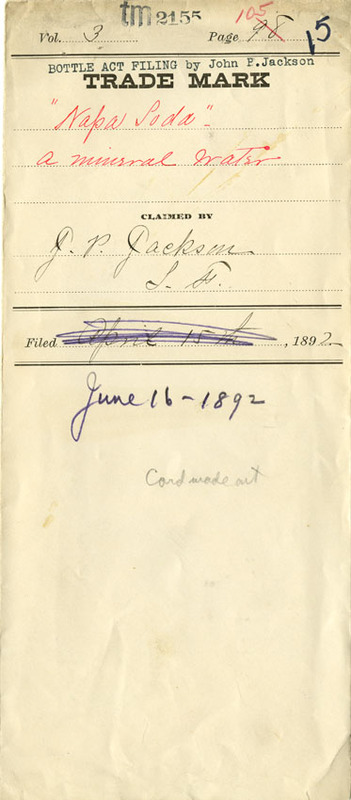 tm 2155
Vol. 3 Page 98 105 15
BOTTLE ACT FILING by John P. Jackson
TRADE MARK
"Napa Soda" -
a mineral water
CLAIMED BY
J. P. Jackson
S. F.
Filed April 15th, 1892
June 16 - 1892
Card made out